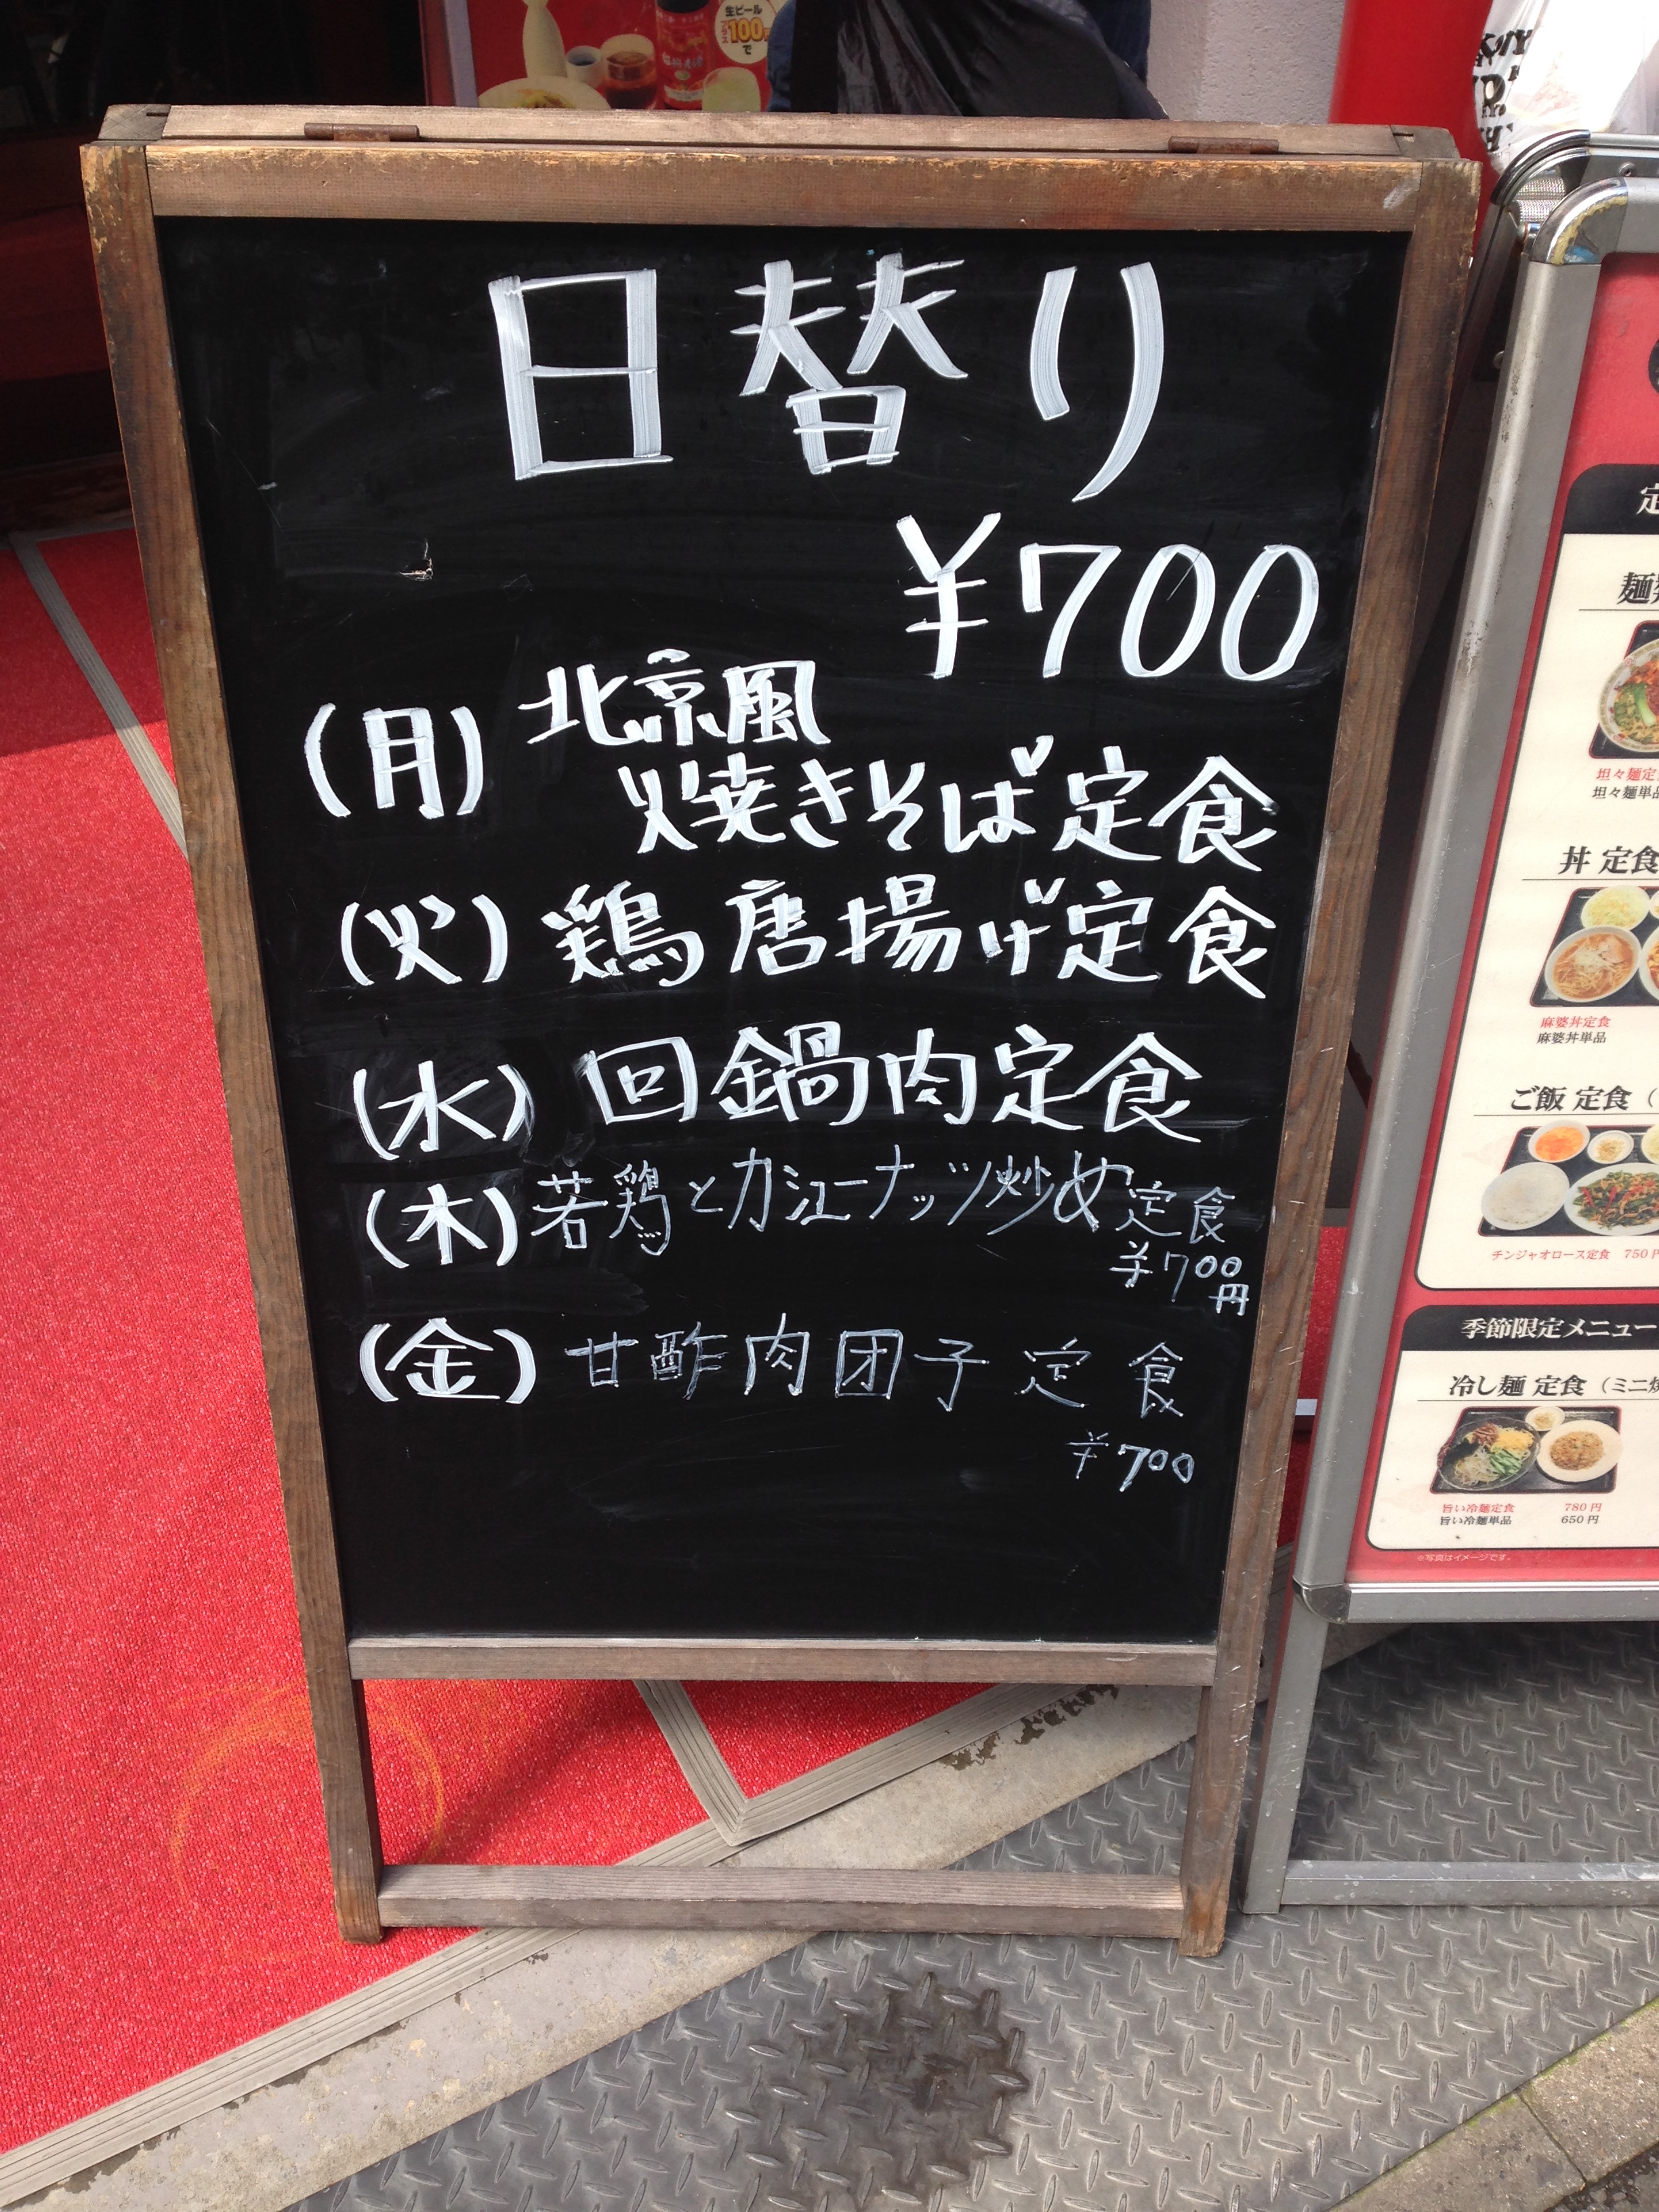 生ビール
プラス
100円
で
日替り
¥700
(月) 北京風
焼きそば定食
(火) 鶏唐揚げ定食
(水) 回鍋肉定食
(木) 若鶏とカシューナッツ炒め定食
¥700
円
(金) 甘酢肉団子定食
¥700
定
麺
坦々麺定
坦々麺単品
丼 定食
麻婆丼定食
麻婆丼単品
ご飯 定食 (
チンジャオロース定食 750円
季節限定メニュー
冷し麺 定食 (ミニ
旨い冷麺定食 780円
旨い冷麺単品 650円
※写真はイメージです。